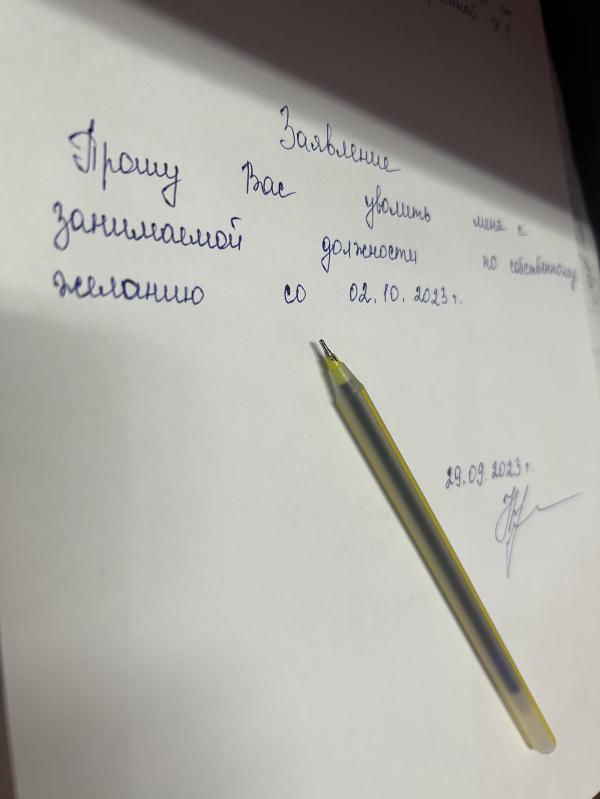 Заявление
Прошу Вас уволить меня с
занимаемой должности по собственному
желанию со 02.10.2023 г.
29.09.2023 г.